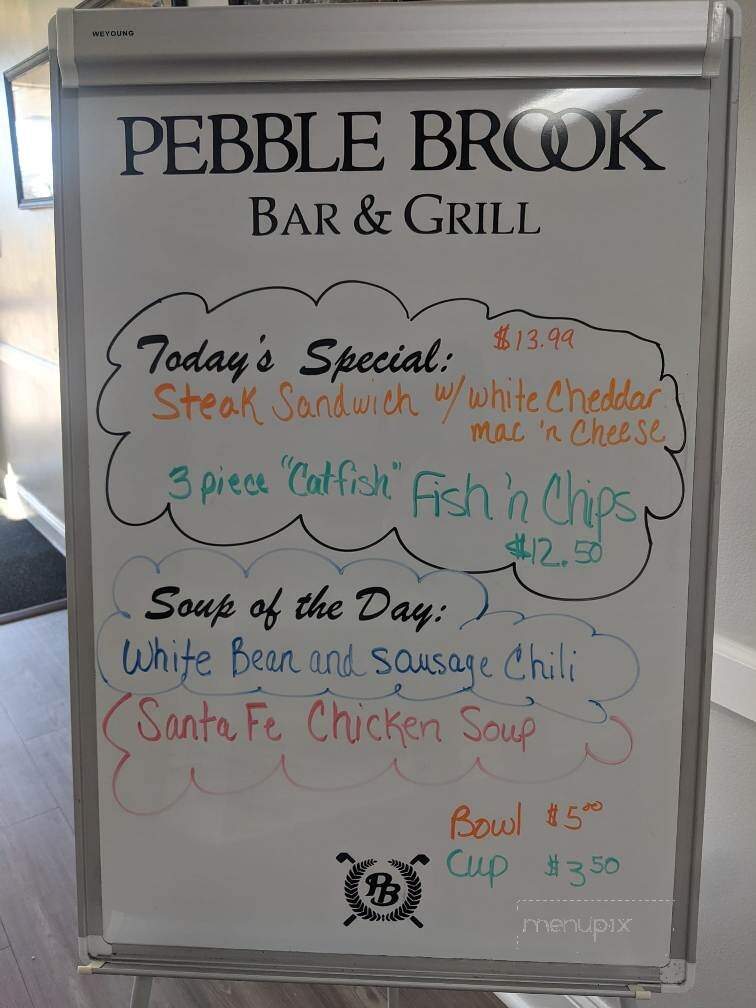 WEYOUNG
PEBBLE BROOK
BAR & GRILL
Today's Special: $13.99
Steak Sandwich w/ white Cheddar
mac 'n Cheese
3 piece "Catfish" Fish 'n Chips
$12.50
Soup of the Day:
White Bean and Sausage Chili
Santa Fe Chicken Soup
Bowl $5.00
Cup $3.50
PB
menupix